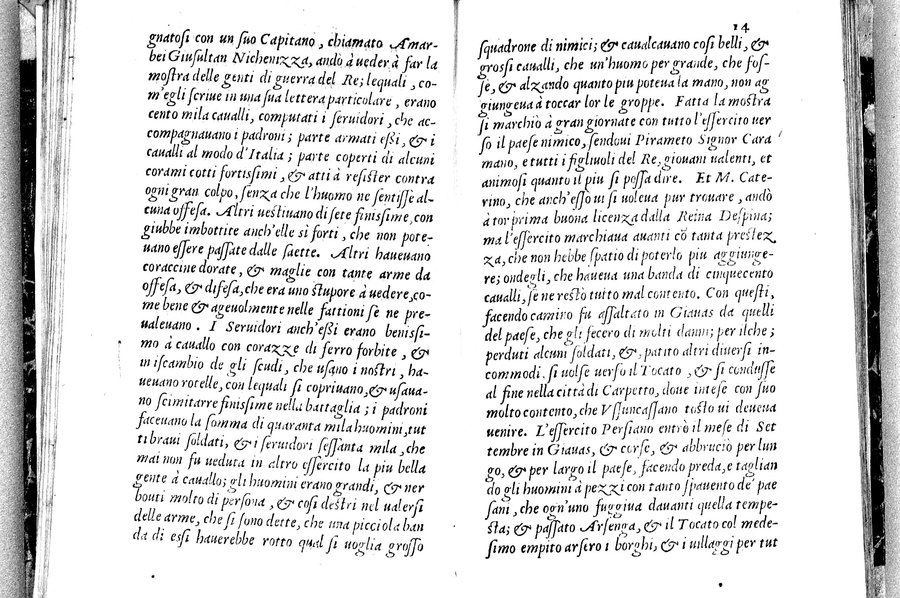 gnatosi con un suo Capitano, chiamato Amar-
bei Giusultan Nichenizza, andò à ueder à far la
mostra delle genti di guerra del Re; lequali, co-
m'egli scriue in una sua lettera particolare, erano
cento mila caualli, computati i seruidori, che ac-
compagnauano i padroni; parte armati eßi, & i
caualli al modo d'Italia; parte coperti di alcuni
corami cotti fortissimi, & atti à resister contra
ogni gran colpo, senza che l'huomo ne sentisse al-
cuna offesa. Altri uestiuano di sete finissime, con
giubbe imbottite anch'elle si forti, che non pote-
uano essere passate dalle saette. Altri haueuano
coraccine dorate, & maglie con tante arme da
offesa, & difesa, che era uno stupore à uedere, co-
me bene & ageuolmente nelle fattioni se ne pre-
ualeuano. I Seruidori anch'eßi erano benissi-
mo à cauallo con corazze di ferro forbite, &
in iscambio de gli scudi, che usano i nostri, ha-
ueuano rotelle, con lequali si copriuano, & usaua-
no scimitarre finissime nella battaglia; i padroni
faceuano la somma di quaranta mila huomini, tut
ti braui soldati, & i seruidori sessanta mila, che
mai non fu ueduta in altro essercito la piu bella
gente à cauallo; gli huomini erano grandi, & ner
bouti molto di persona, & cosi destri nel ualersi
delle arme, che si sono dette, che una picciola ban
da di essi hauerebbe rotto qual si uoglia grosso
14
squadrone di nimici; & caualcauano cosi belli, &
grossi caualli, che un'huomo per grande, che fos-
se, & alzando quanto piu poteua la mano, non ag
giungeua à toccar lor le groppe. Fatta la mostra
si marchiò à gran giornate con tutto l'essercito uer
so il paese nimico, sendoui Pirameto Signor Cara
mano, e tutti i figliuoli del Re, giouani ualenti, et
animosi quanto il piu si possa dire. Et M. Cate-
rino, che anch'esso ui si uoleua pur trouare, andò
à tor prima buona licenza dalla Reina Despina;
ma l'essercito marchiaua auanti cō tanta prestez
za, che non hebbe spatio di poterlo piu aggiunge-
re; ondegli, che haueua una banda di cinquecento
caualli, se ne restò tutto mal contento. Con questi,
facendo camino fu assaltato in Giauas da quelli
del paese, che gli fecero di molti danni; per ilche;
perduti alcuni soldati, &, patito altri diuersi in-
commodi, si uolse uerso il Tocato, & si condusse
al fine nella città di Carpetto, doue intese con suo
molto contento, che Vssuncassano tosto ui doueua
uenire. L'essercito Persiano entrò il mese di Set
tembre in Giauas, & corse, & abbruciò per lun
go, & per largo il paese, facendo preda, e taglian
do gli huomini à pezzi con tanto spauento de' pae
sani, che ogn'uno fuggiua dauanti quella tempe-
sta; & passato Arsenga, & il Tocato col mede-
simo empito arsero i borghi, & i uillaggi per tut